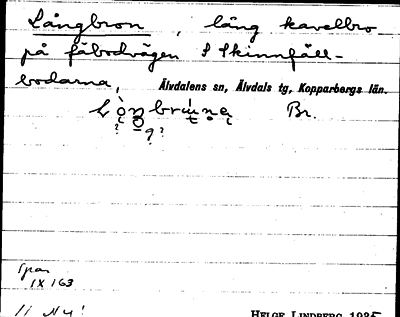 Långbron, lång kavelbro
på fäbodvägen t Skinnfäll-
bodarna, Älvdalens sn, Älvdals tg, Kopparbergs län.
Br.
IX 163
HELGE LINDBERG 1935